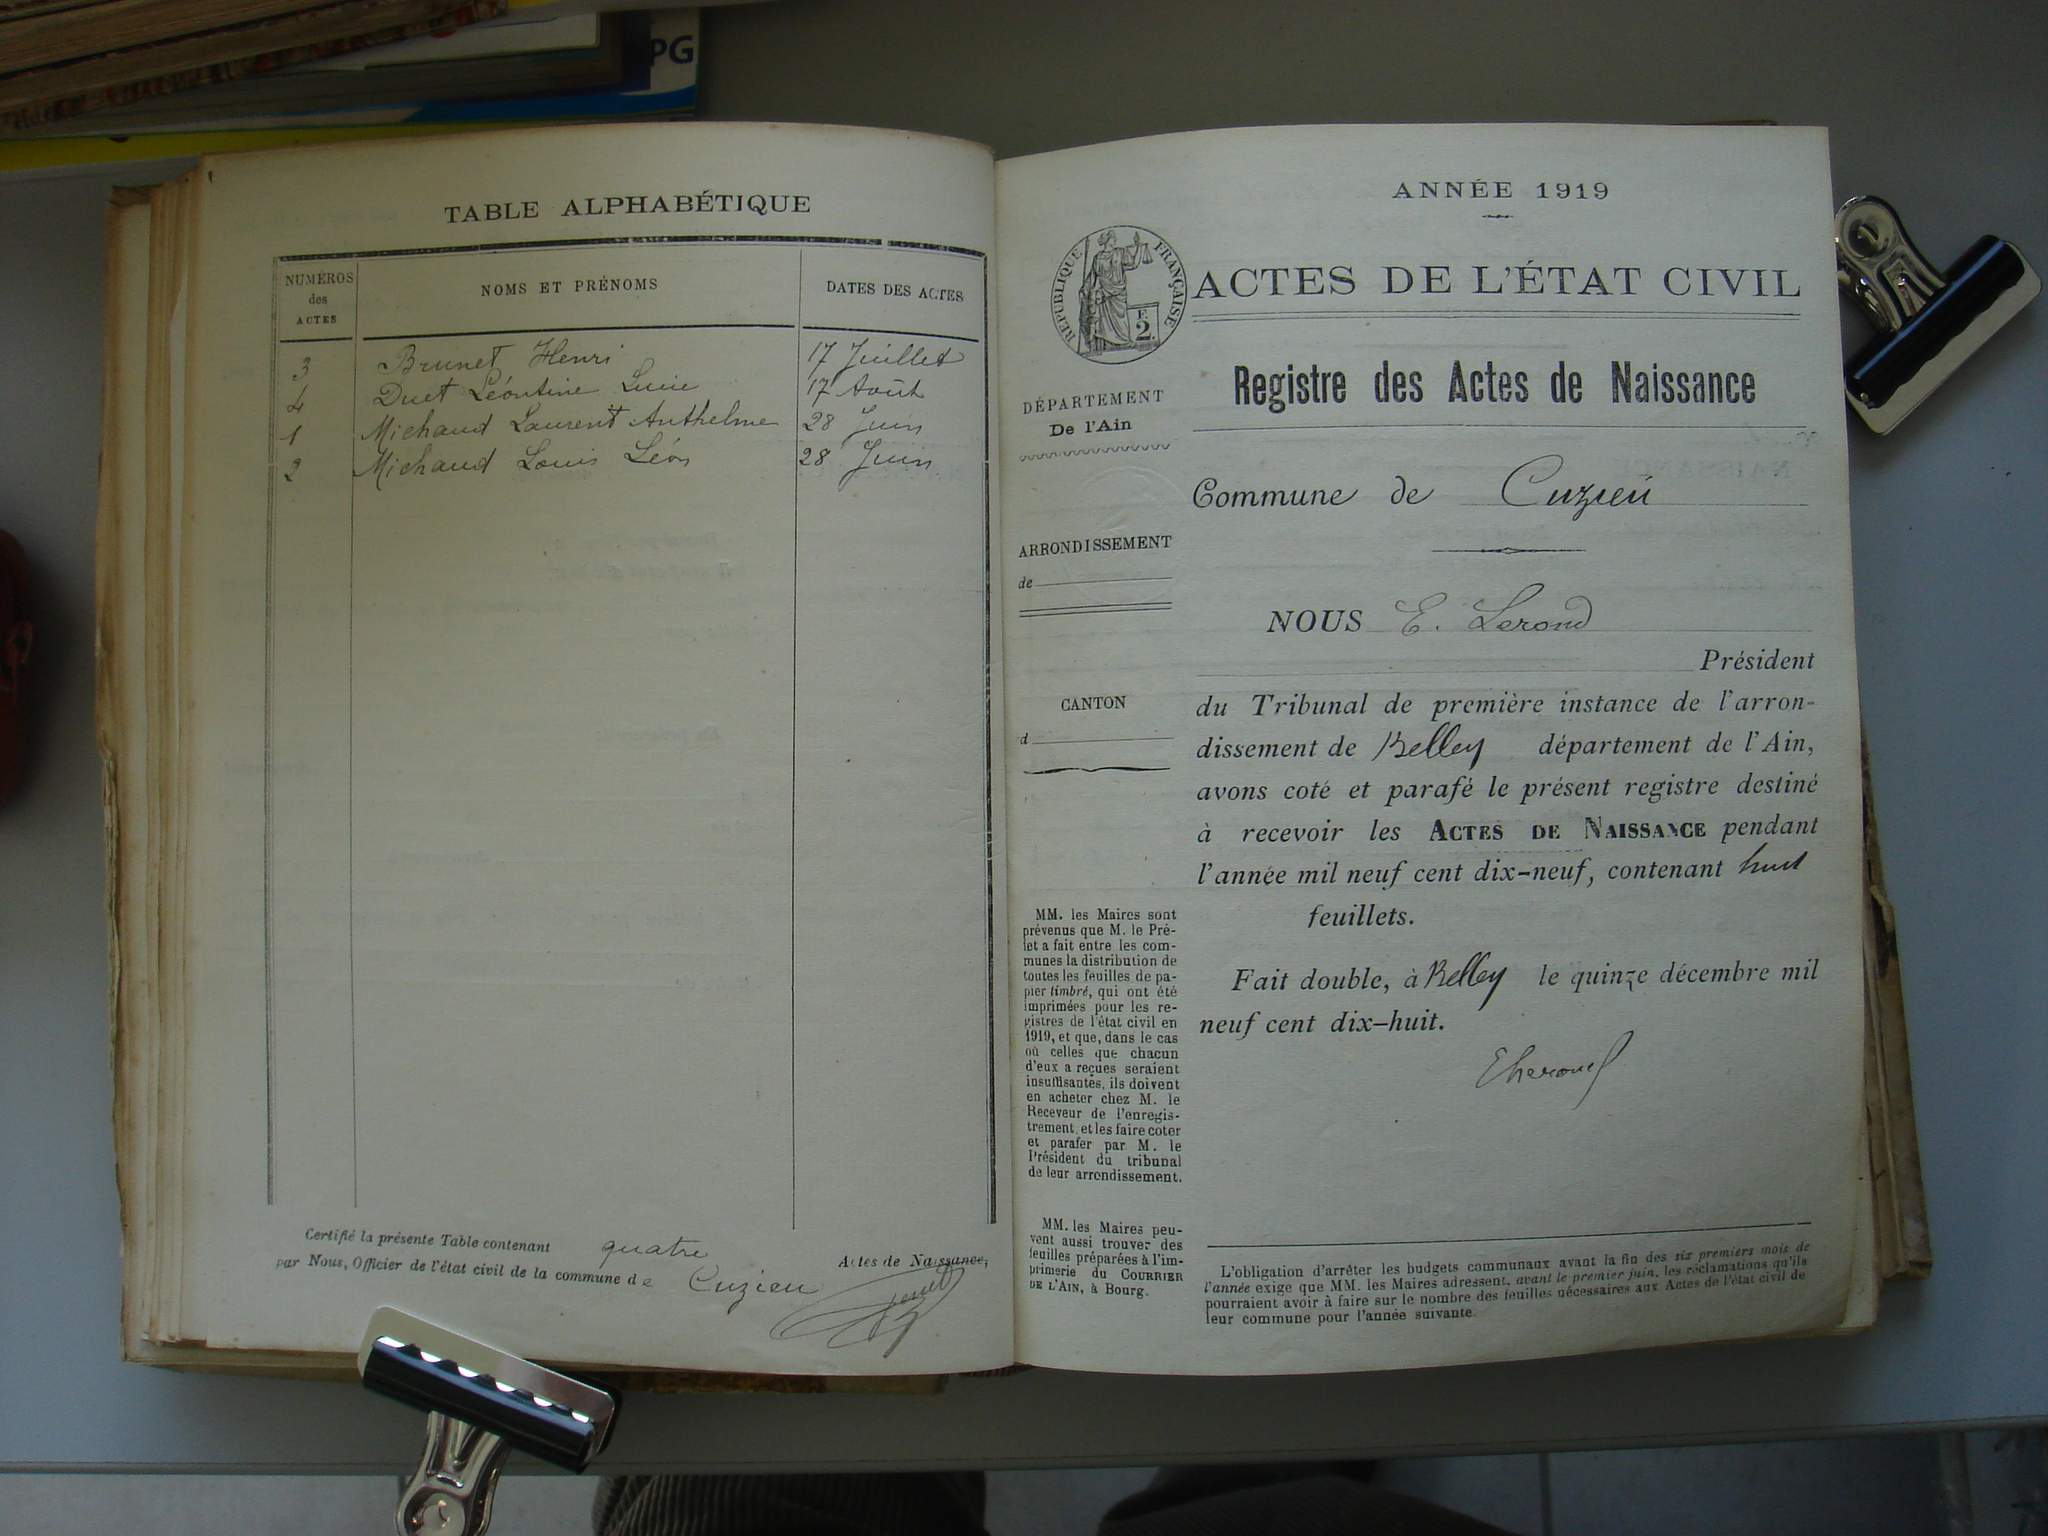 PG
TABLE ALPHABÉTIQUE
NUMÉROS
des
ACTES
NOMS ET PRÉNOMS
DATES DES ACTES
3 Brunet Henri 17 Juillet
4 Duet Léontine Lucie 17 Août
1 Michaud Laurent Anthelme 28 Juin
2 Michaud Louis Léon 28 Juin
Certifié la présente Table contenant quatre Actes de Naissance,
par Nous, Officier de l'état civil de la commune de Cuzieu
ANNÉE 1919
RÉPUBLIQUE FRANÇAISE
F.
2.
ACTES DE L'ÉTAT CIVIL
Registre des Actes de Naissance
DÉPARTEMENT
De l'Ain
Commune de Cuzieu
ARRONDISSEMENT
de
NOUS E. Lerond
Président
CANTON
d
du Tribunal de première instance de l'arron-
dissement de Belley département de l'Ain,
avons coté et parafé le présent registre destiné
à recevoir les ACTES DE NAISSANCE pendant
l'année mil neuf cent dix-neuf, contenant huit
feuillets.
Fait double, à Belley le quinze décembre mil
neuf cent dix-huit.
MM. les Maires sont
prévenus que M. le Pré-
fet a fait entre les com-
munes la distribution de
toutes les feuilles de pa-
pier timbré, qui ont été
imprimées pour les re-
gistres de l'état civil en
1919, et que, dans le cas
où celles que chacun
d'eux a reçues seraient
insuffisantes, ils doivent
en acheter chez M. le
Receveur de l'enregis-
trement, et les faire coter
et parafer par M. le
Président du tribunal
de leur arrondissement.
MM. les Maires peu-
vent aussi trouver des
feuilles préparées à l'im-
primerie du COURRIER
DE L'AIN, à Bourg.
L'obligation d'arrêter les budgets communaux avant la fin des six premiers mois de
l'année exige que MM. les Maires adressent, avant le premier juin, les réclamations qu'ils
pourraient avoir à faire sur le nombre des feuilles nécessaires aux Actes de l'état civil de
leur commune pour l'année suivante.